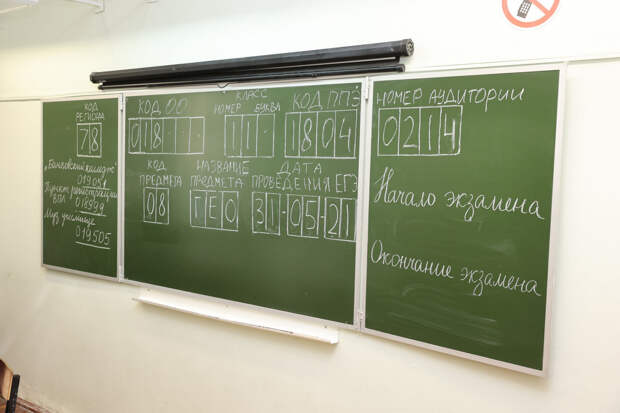 КОД
РЕГИОНА
78
"Банковский колледж"
019051
Пункт регистрации
ВПЛ
018999
Муз училище
019505
КОД ОО
018
КЛАСС
НОМЕР БУКВА
11
КОД ППЭ
1804
КОД
ПРЕДМЕТА
08
НАЗВАНИЕ
ПРЕДМЕТА
ГЕО
ДАТА
ПРОВЕДЕНИЯ ЕГЭ
31-05-21
НОМЕР АУДИТОРИИ
0214
Начало экзамена
Окончание экзамена